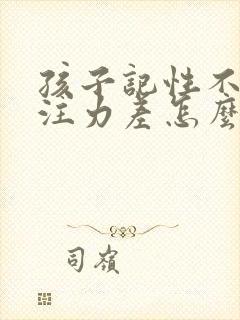 孩子記性不
注力差怎麼
司嶺